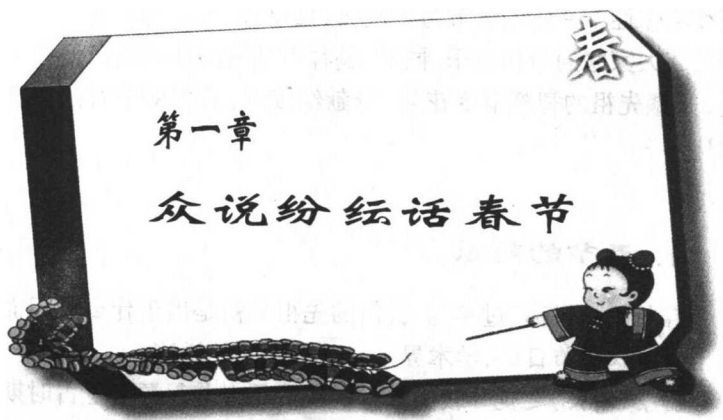 春
第一章
众说纷纭话春节